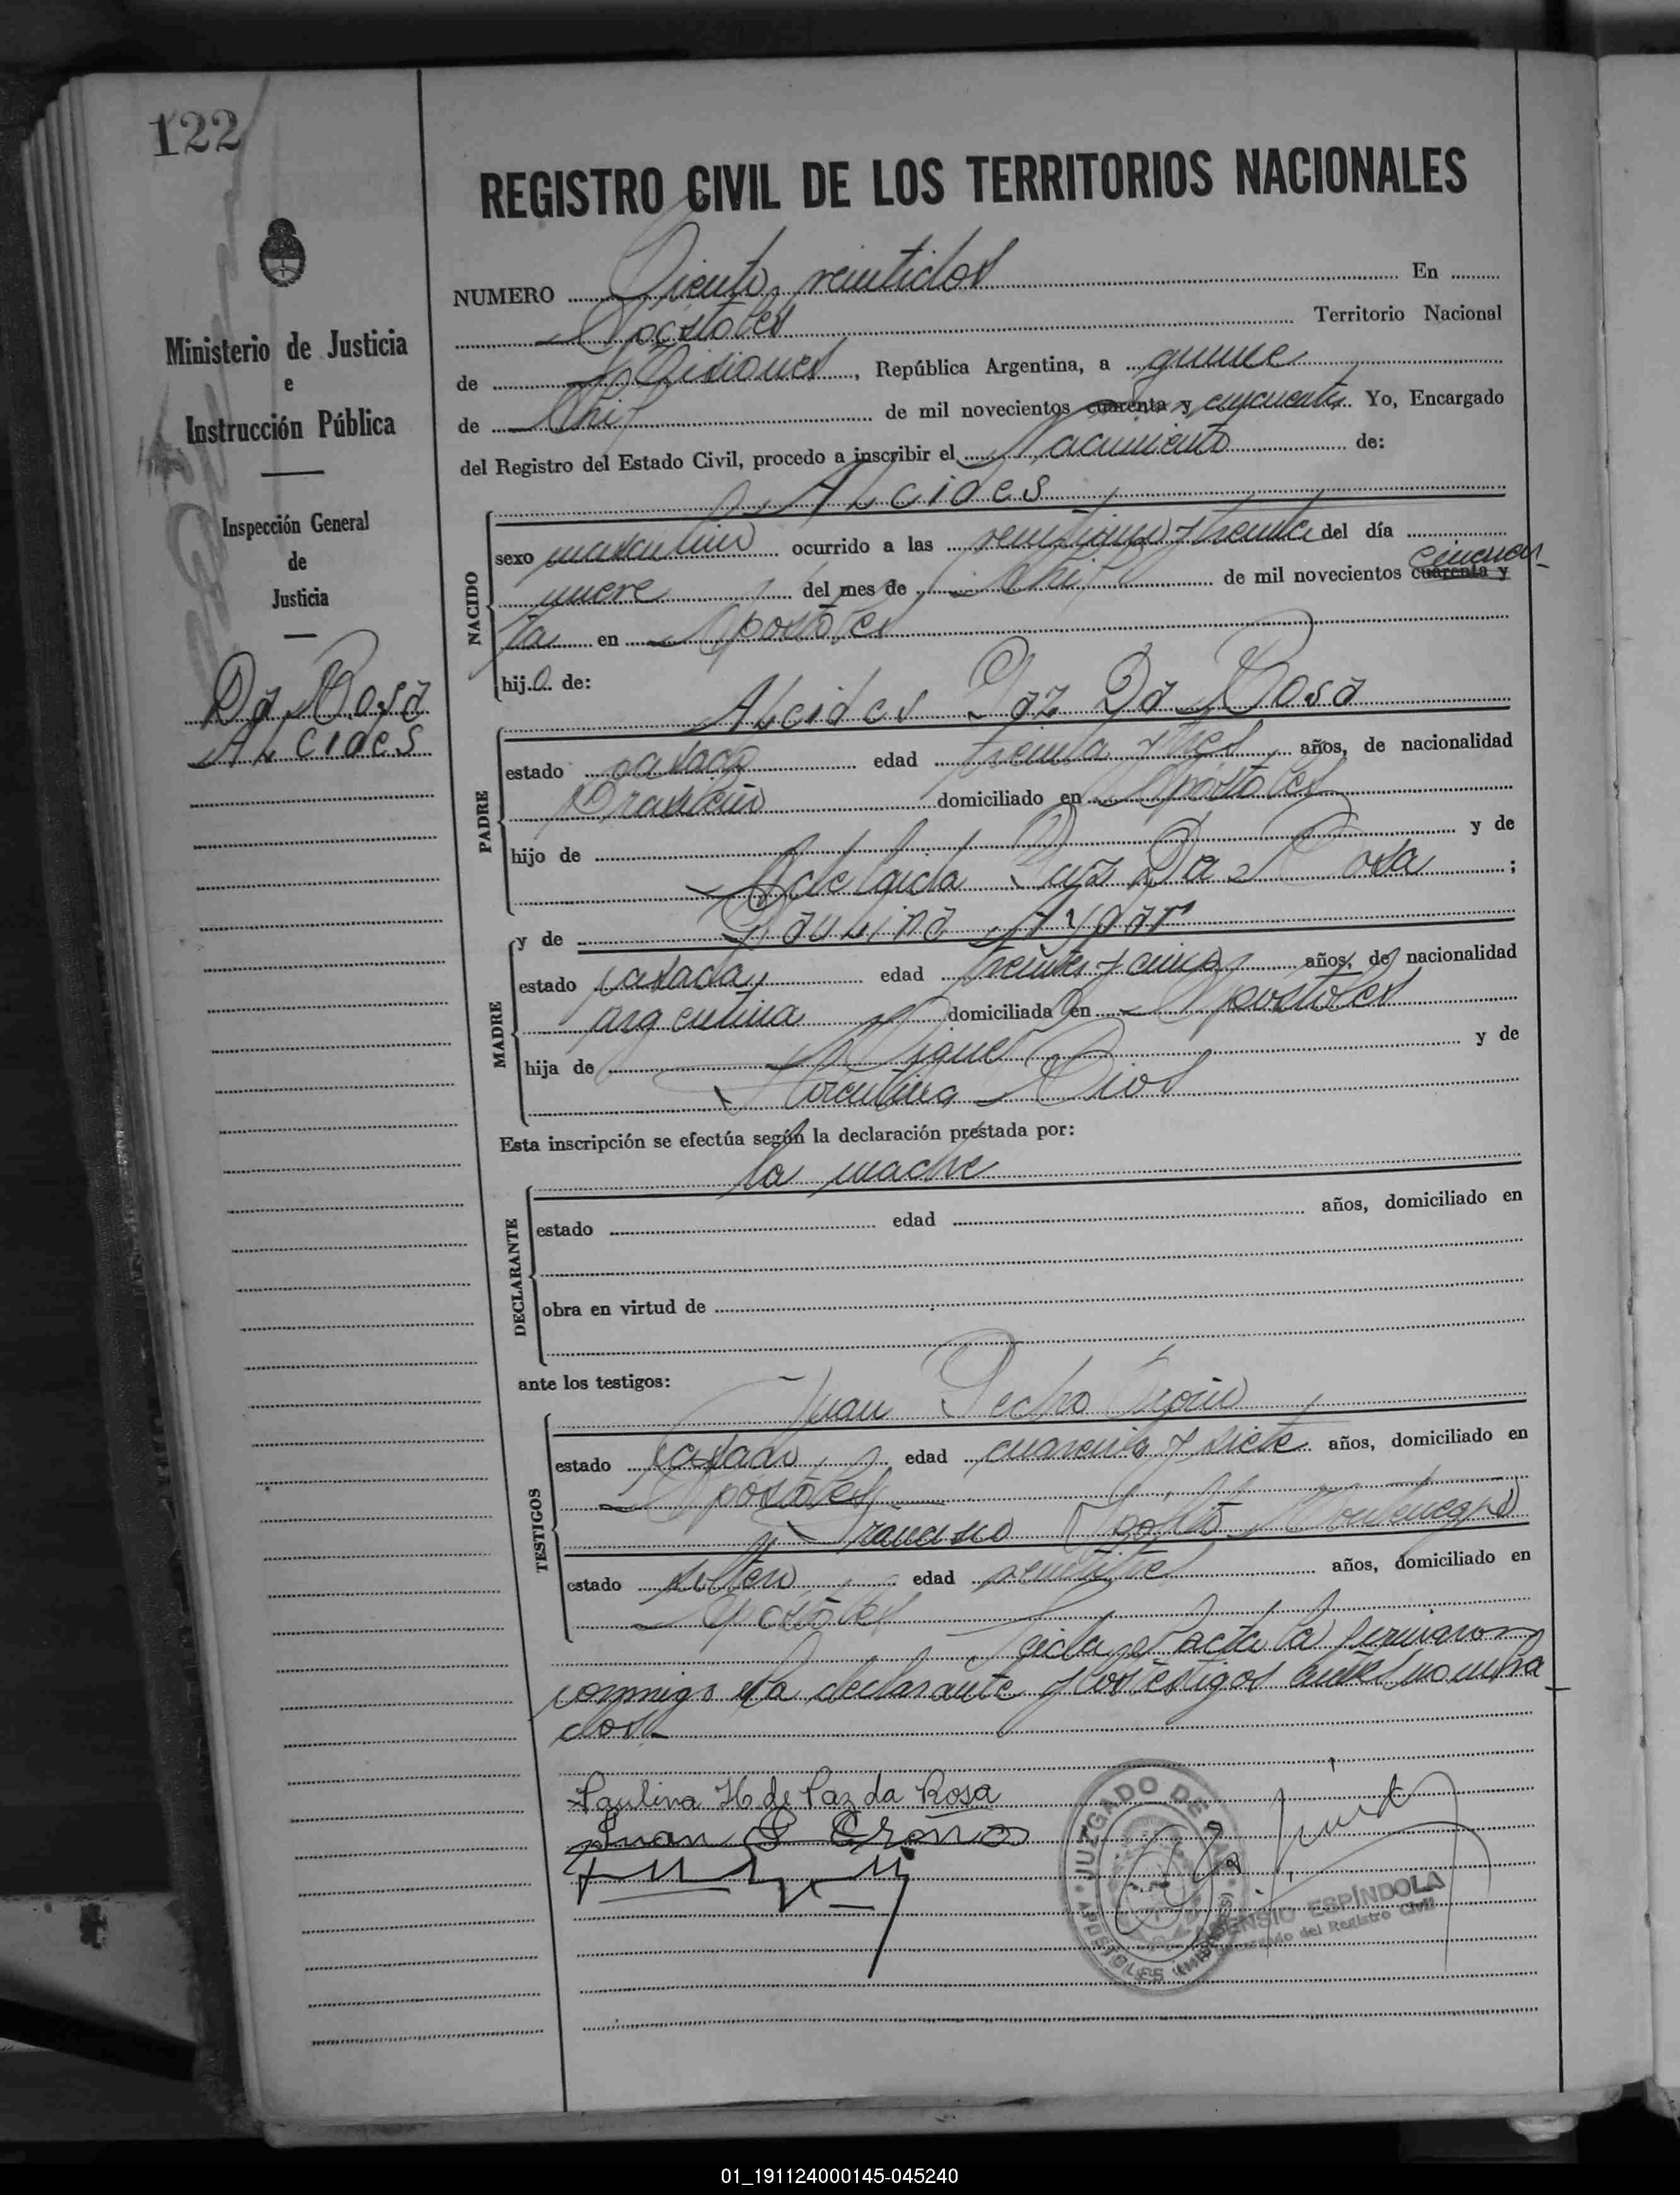 122
REGISTRO CIVIL DE LOS TERRITORIOS NACIONALES
NUMERO Ciento veintidos En
Apóstoles Territorio Nacional
de Misiones, República Argentina, a quince
de de mil novecientos cuarenta y cincuenta. Yo, Encargado
del Registro del Estado Civil, procedo a inscribir el Nacimiento de:
Ministerio de Justicia
e
Instrucción Pública
Inspección General
de
Justicia
Da Rosa
Alcides
Alcides
NACIDO
sexo masculino ocurrido a las veintiuna y treinta del día
nueve del mes de de mil novecientos cuarenta y cincuen
ta en Apóstoles
hijo de:
Alcides Paz Da Rosa
PADRE
estado casado edad treinta y tres años, de nacionalidad
Brasileño domiciliado en Apóstoles
hijo de y de
Adelaida Paz Da Rosa ;
y de Paulina
MADRE
estado casada edad treinta y cinco años, de nacionalidad
argentina domiciliada en Apóstoles
hija de Miguel y de
Florentina Rios
Esta inscripción se efectúa según la declaración prestada por:
la madre
DECLARANTE
estado edad años, domiciliado en
obra en virtud de
ante los testigos:
Juan Pedro
TESTIGOS
estado casado edad cuarenta y siete años, domiciliado en
Apóstoles
y Francisco Montenegro
estado soltero edad años, domiciliado en
Apóstoles
Leida el acta la firmaron
conmigo la declarante y los testigos antes nombra
dos.
Paulina H. de Paz da Rosa
Juan P
JUZGADO DE PAZ
APOSTOLES (MISIONES)
ASENSIO ESPÍNDOLA
Encargado del Registro Civil
01_191124000145-045240